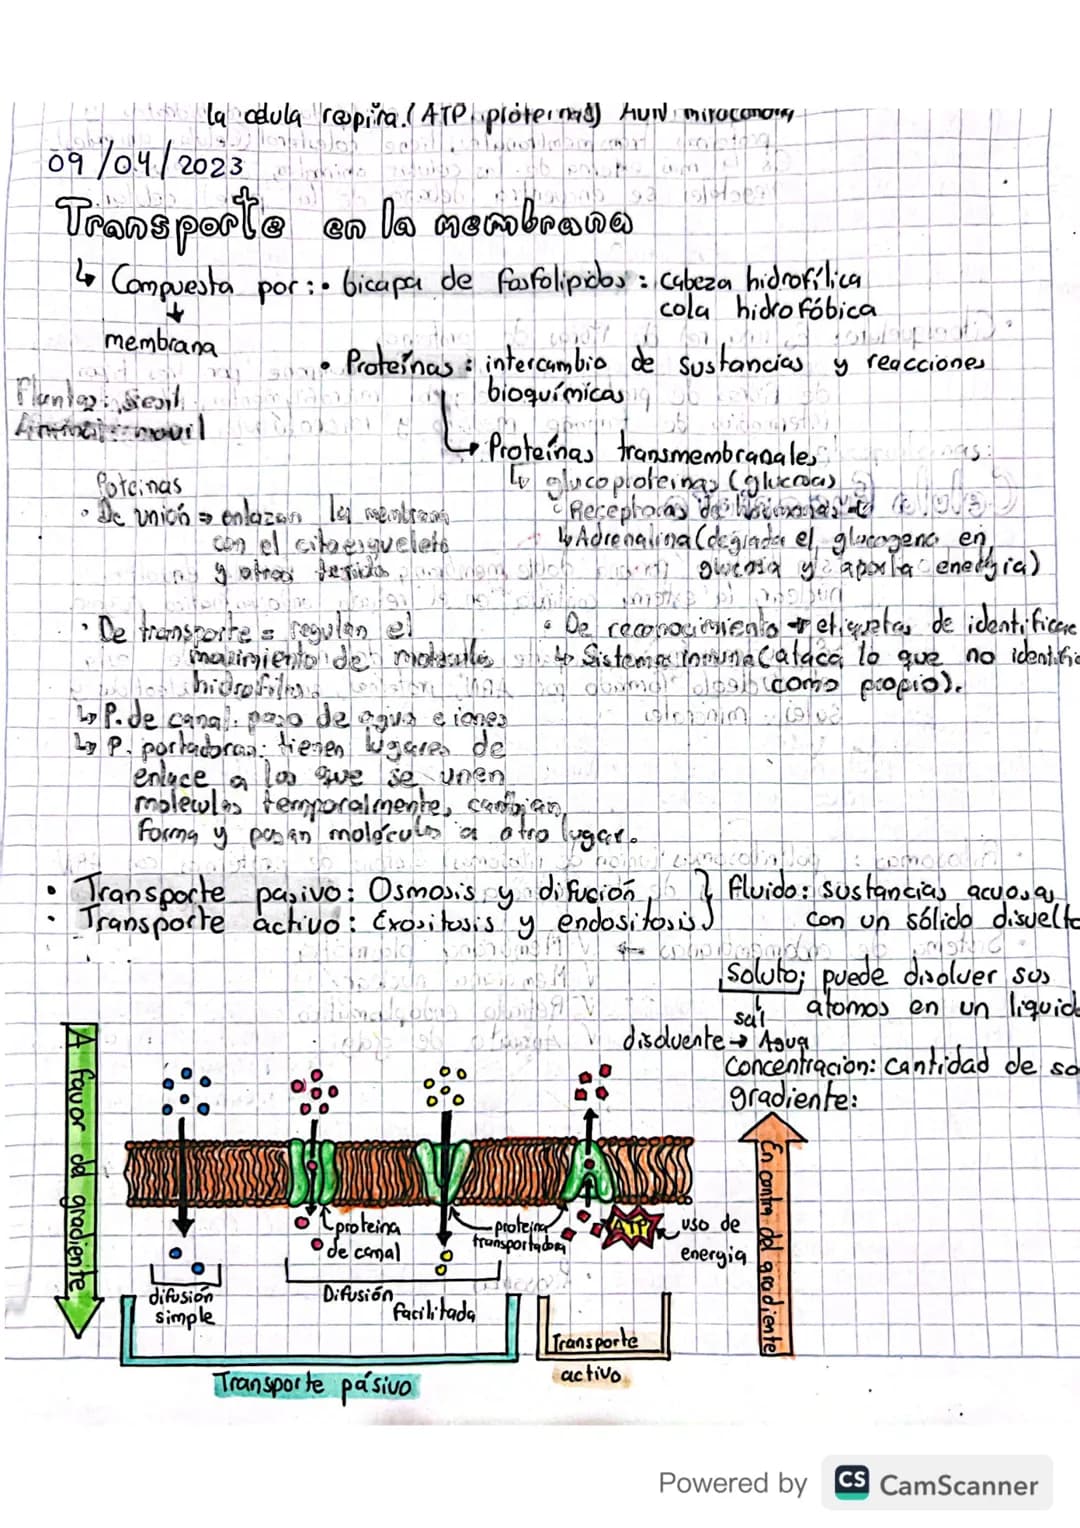 la celula respira. (ATP proteinas) ADN mitocondria
09/04/2023
Transporte en la membrana
↳ Compuesta por: • bicapa de fosfolipidos: cabeza hidrofílica
cola hidrofóbica
membrana
• Proteínas: intercambio de sustancias y reacciones
bioquímicas
movil
↳ Proteínas transmembranales
↳ glucoproteinas (glucosas)
Poteinas
• De unión ⇒ enlazan la membrana
con el citoesqueleto
y otros tejidos
Receptoras de hormonas
↳ Adrenalina (degrada el glucogeno en
glucosa y aporta energia)
• De transporte = regulan el
movimiento de moleculas
hidrofilas
• De reconocimiento → etiquetas de identificac
↳ Sistema inmune (ataca lo que no identific
como propio).
↳ P. de canal: paso de agua e iones
↳ P. portadoras: tienen lugares de
enlace a los que se unen
moleculas temporalmente, cambian
forma y pasan moléculas a otro lugar.
• Transporte pasivo: Osmosis y difución
• Transporte activo: Exositosis y endositosis
fluido: sustancias acuosas
con un sólido disuelto
Soluto; puede disolver sus
sal atomos en un liquido
disolvente → Agua
Concentracion: cantidad de so
gradiente:
A favor del gradiente
En contra del gradiente
proteina
de canal
proteina
transportadora
ATP
uso de
energia
difusión
simple
Difusión
facilitada
Transporte pásivo
Transporte
activo
Powered by CS CamScanner